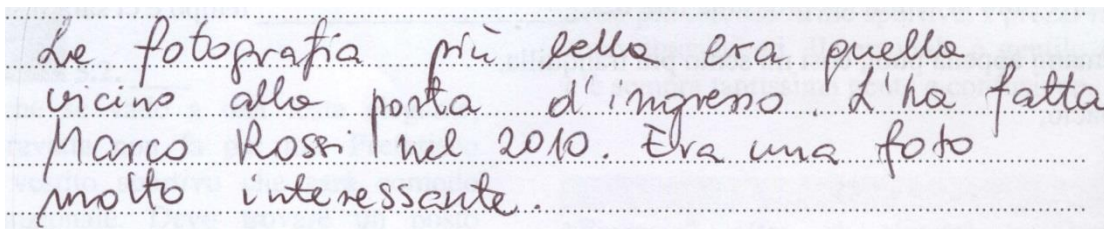 La fotografia più bella era quella
vicino alla porta d'ingresso. L'ha fatta
Marco Rossi nel 2010. Era una foto
molto interessante.